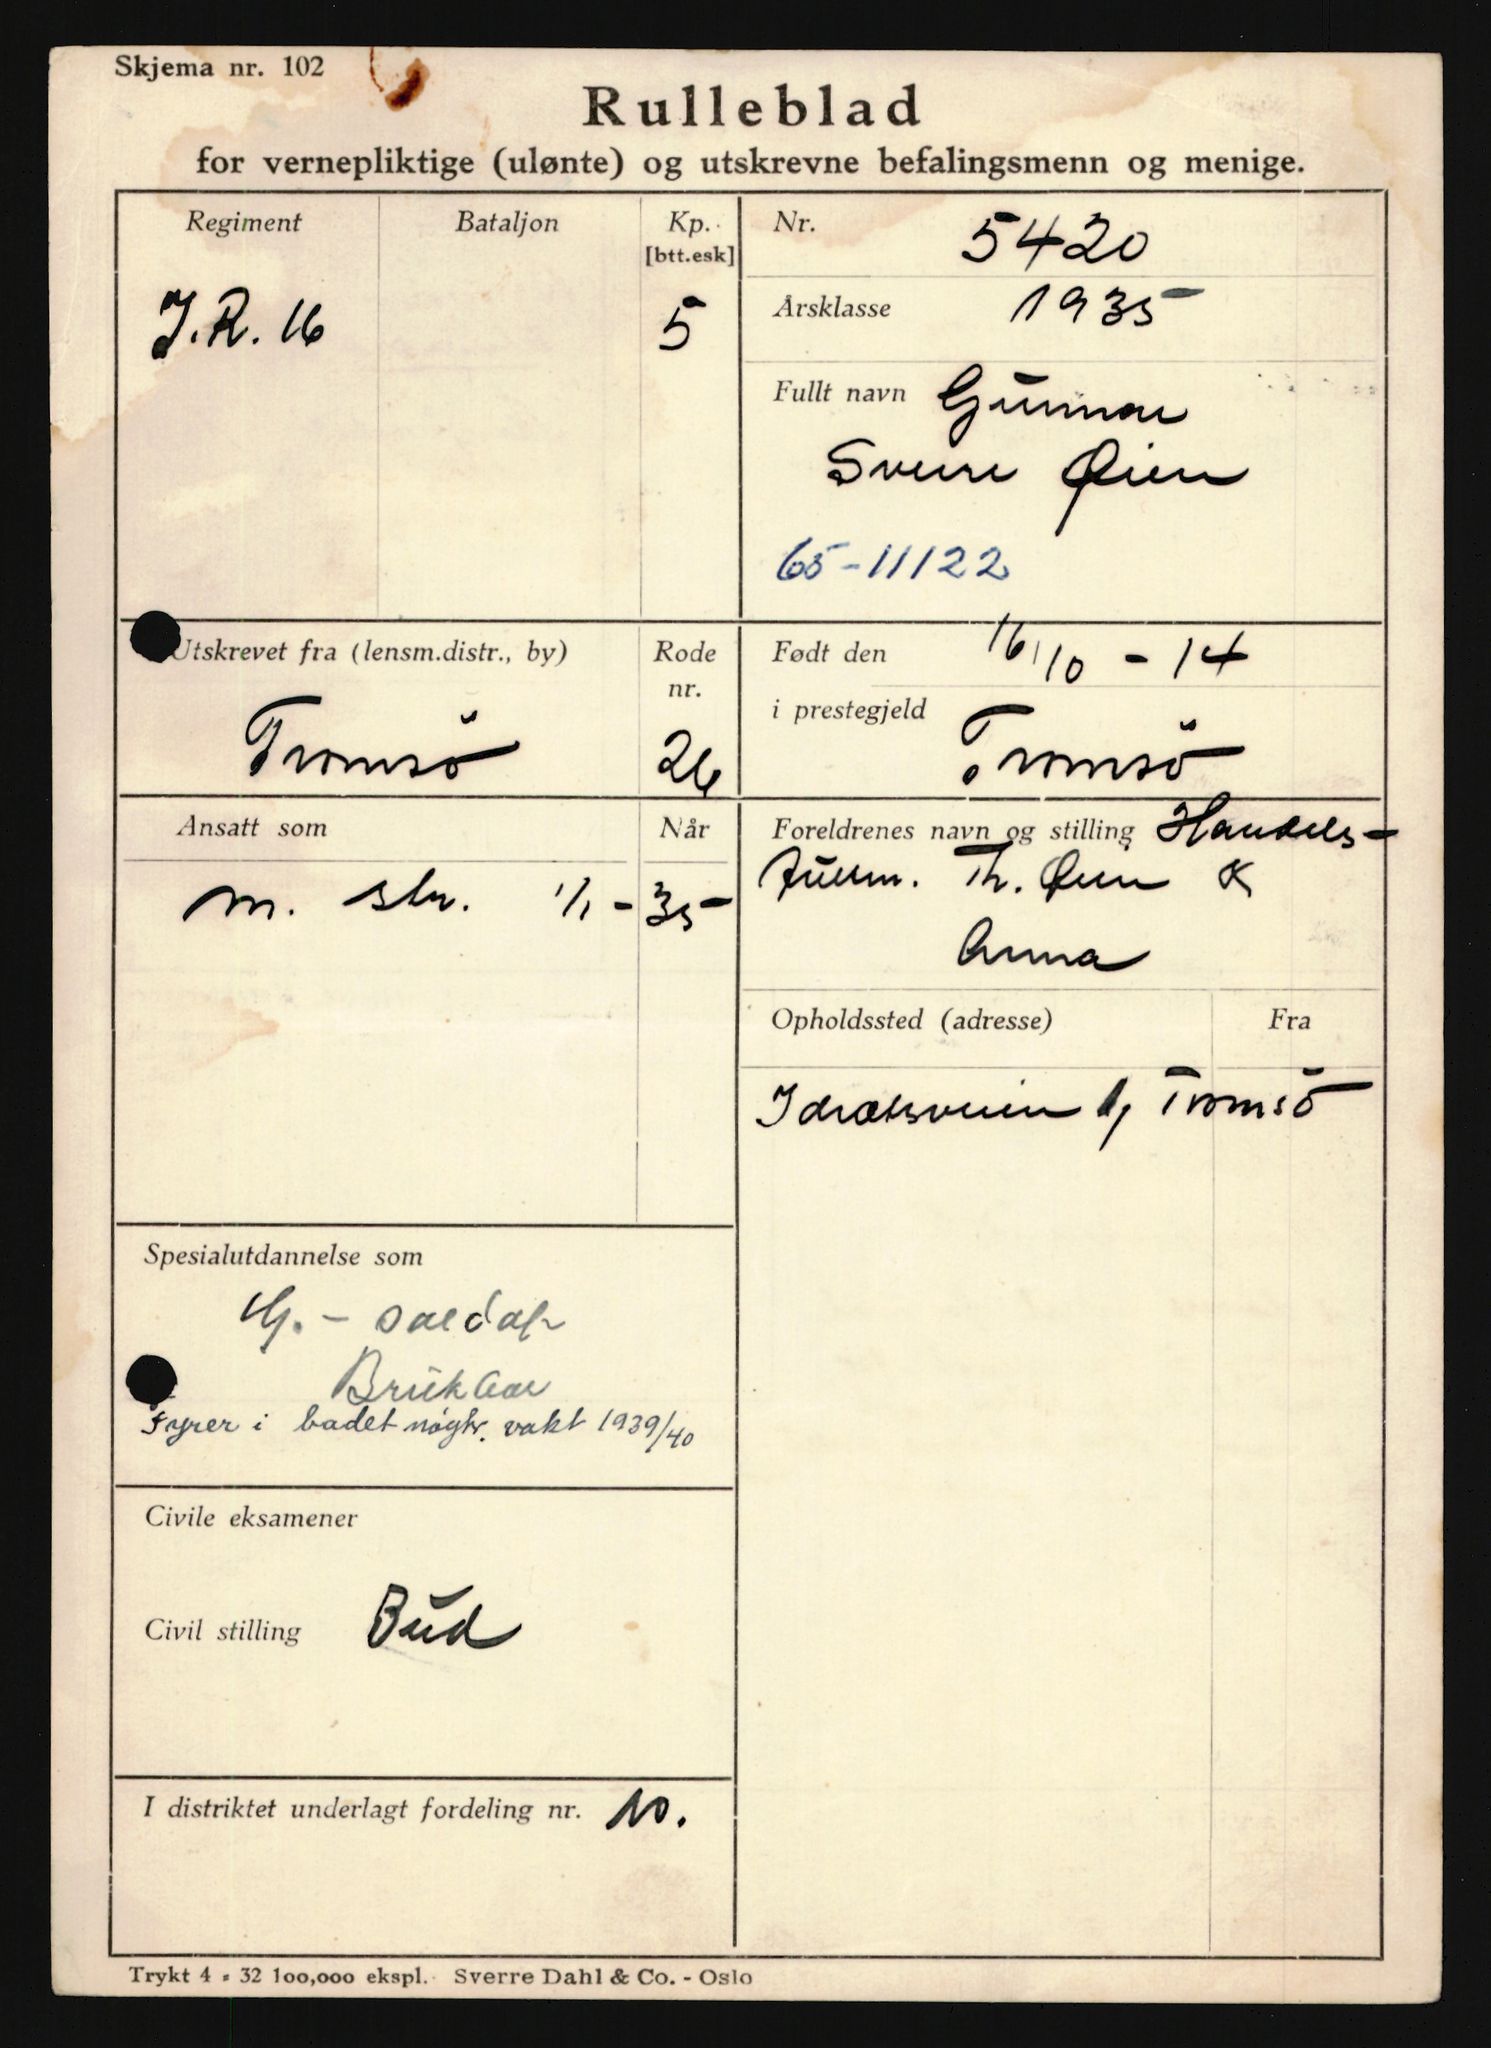 Skjema nr. 102
Rulleblad
for vernepliktige (ulønte) og utskrevne befalingsmenn og menige.
Regiment Bataljon Kp. [btt.esk]
J.R. 16 5
Nr. 5420
Årsklasse 1935
Fullt navn Gunnar
Sverre Øien
65-11122
Utskrevet fra (lensm.distr., by) Rode nr.
Tromsö 26
Født den 16/10 - 14
i prestegjeld Tromsö
Ansatt som Når
m. str. 1/1 - 35
Foreldrenes navn og stilling Handels-
fullm. Th. Øien &
Anna
Opholdssted (adresse) Fra
Idrætsveien Tromsö
Spesialutdannelse som
Brukbar
Fyrer i badet nøytr. vakt 1939/40
Civile eksamener
Civil stilling Bud
I distriktet underlagt fordeling nr. 10.
Trykt 4 - 32 100,000 ekspl. Sverre Dahl & Co. - Oslo